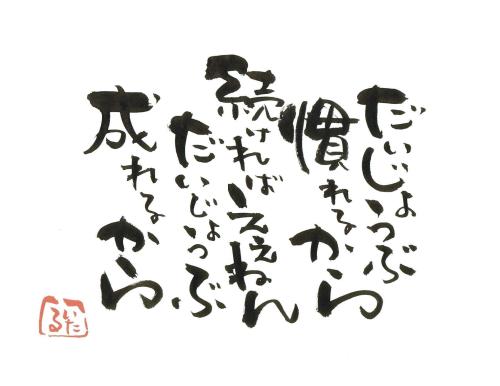 だいじょうぶ
慣れるから
続ければいいねん
だいじょうぶ
成れるから